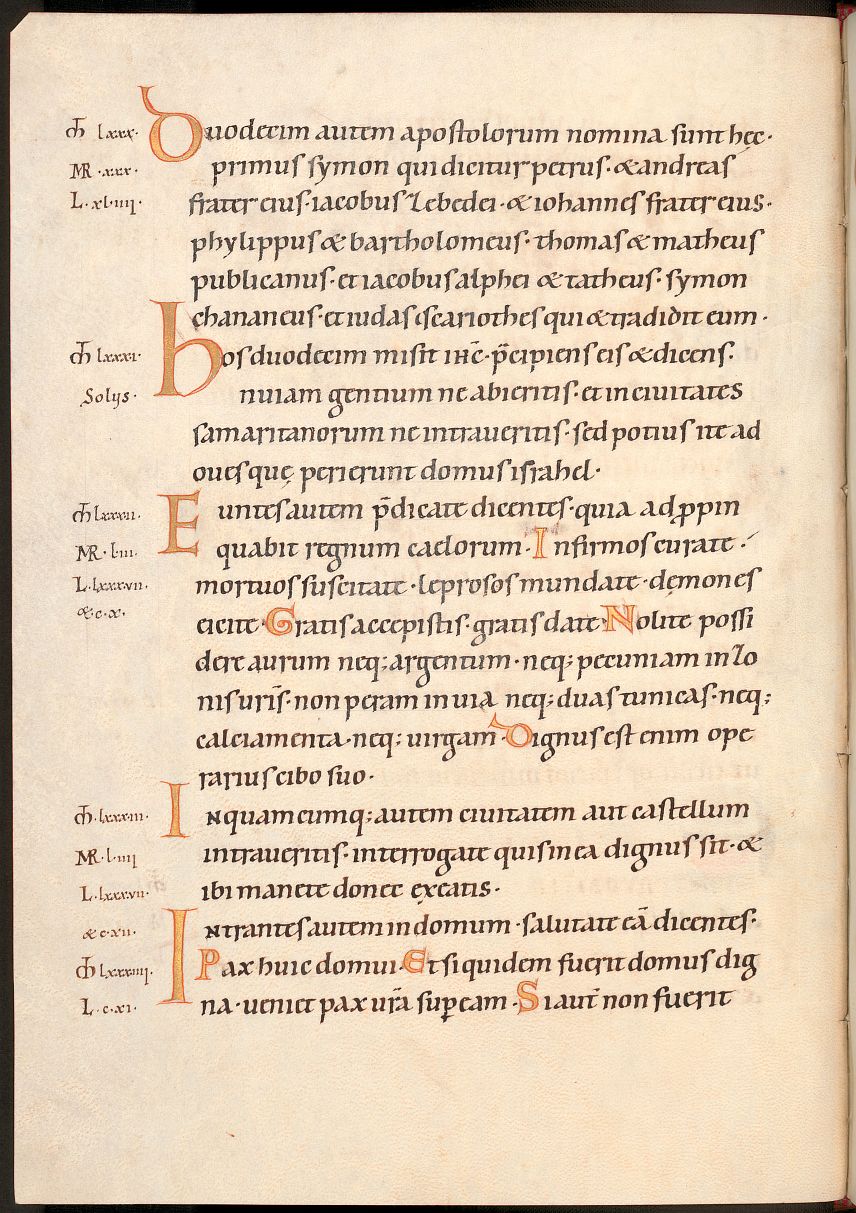 M̄ lxxx· Duodecim autem apostolorum nomina sunt hęc·
MR ·xxx· primus symon qui dicitur petrus· & andreas
L· xl·iiii· frater eius· iacobus zebedei· & iohannes frater eius·
phylippus & bartholomeus· thomas & matheus
publicanus· et iacobus alphei & tatheus· symon
chananeus· et iudas scariothes qui & tradidit eum·
M̄ lxxxi· hos duodecim misit ihc̄· p̄cipiens eis & dicens·
Solus· In uiam gentium ne abieritis· et in ciuitates
samaritanorum ne intraueritis· sed potius ite ad
oues quę perierunt domus israhel·
M̄ lxxxii· Euntes autem p̄dicate dicentes· quia adꝓpin
MR· l·iii· quabit regnum caelorum· Infirmos curate·
L· lxxxvii· mortuos suscitate· leprosos mundate· dęmones
&·c·x· eicite· Gratis accepistis· gratis date· Nolite possi
dere aurum neq; argentum· neq; pecuniam in zo
nis uris̄· non peram in uia neq; duas tunicas· neq;
calciamenta· neq; uirgam· Dignus est enim ope
rarius cibo suo·
M̄· lxxxiii· In quamcumq; autem ciuitatem aut castellum
MR· l·iiii intraueritis· interrogate quis in ea dignus sit· &
L· lxxxvii· ibi manete donec exeatis·
&·c·xii· Intrantes autem in domum· salutate eā dicentes·
M̄ lxxxiiii· Pax huic domui· Et siquidem fuerit domus dig
L·c·xi· na· ueniet pax ur̄a suꝑ eam· Si aut̄ non fuerit